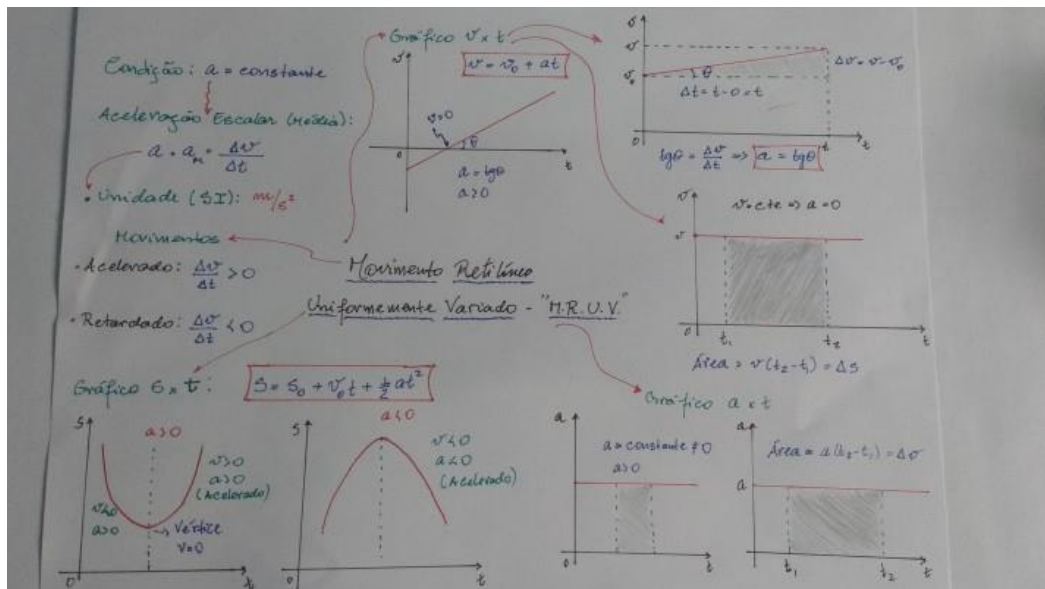 Condição: a = constante
Aceleração Escalar (Média):
a = aₘ = Δv/Δt
• Unidade (SI): m/s²
Movimentos
• Acelerado: Δv/Δt > 0
• Retardado: Δv/Δt < 0
Gráfico v x t:
v = v₀ + at
v
v=0
θ
0
t
a = tgθ
a>0
v
v
v₀
θ
Δv = v - v₀
Δt = t - 0 = t
0
t
t
tgθ = Δv/Δt => a = tgθ
v
v = cte => a = 0
v
0
t₁
t₂
t
Área = v(t₂-t₁) = ΔS
Movimento Retilíneo
Uniformemente Variado - "M.R.U.V."
Gráfico S x t:
S = S₀ + v₀t + ½ at²
S
a>0
v>0
a>0
(Acelerado)
v<0
a>0
Vértice
v=0
0
t
S
a<0
v<0
a<0
(Acelerado)
0
t
Gráfico a x t
a
a = constante ≠ 0
a>0
0
t
a
Área = a(t₂-t₁) = Δv
a
0
t₁
t₂
t